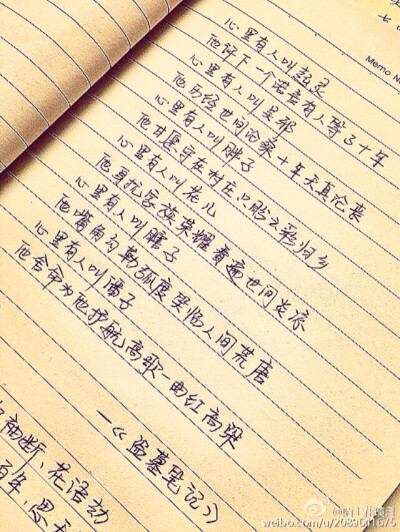 Memo No
心里有人叫起灵
他许下一个诺言有人等了十年
心里有人叫吴邪
他历经世间沧桑十年天真论丧
心里有人叫胖子
他甘愿守在村庄只盼云彩归乡
心里有人叫花儿
他身扛家族荣耀看遍世间炎凉
心里有人叫瞎子
他嘴角勾勒弧度笑临人间荒唐
心里有人叫潘子
他舍命为他护航高歌一曲红高粱
—《盗墓笔记》
袖断、花语动
百年,思
weibo.com/u/2089611675